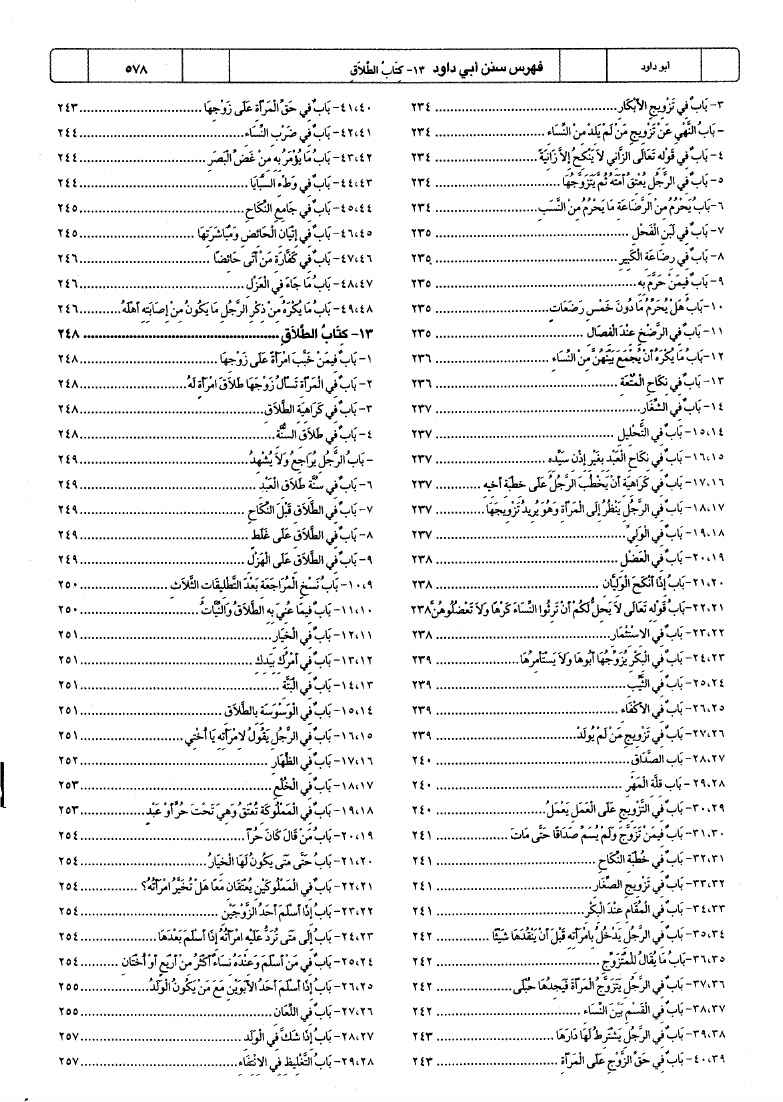 ابو داود
فهرس سنن أبي داود ١٣- كِتَابُ الطَّلاَقِ
٥٧٨
٣- بَابٌ في تَزْوِيجِ الأَبْكَارِ ... ٢٣٤
- بَابُ النَّهْيِ عَنْ تَزْوِيجِ مَنْ لَمْ يَلِدْ مِنَ النِّسَاءِ ... ٢٣٤
٤- بَابٌ في قَوْلِه تَعَالَى الزَّاني لاَ يَنْكِحُ إلاَّ زَانِيَةً ... ٢٣٤
٥- بَابٌ في الرَّجُلِ يُعْتِقُ أَمَتَهُ ثُمَّ يَتَزَوَّجُهَا ... ٢٣٤
٦- بَابُ يَحْرُمُ مِنَ الرَّضَاعَةِ مَا يَحْرُمُ مِنَ النَّسَبِ ... ٢٣٤
٧- بَابٌ في لَبَنِ الْفَحْلِ ... ٢٣٥
٨- بَابٌ في رِضَاعَةِ الْكَبِيرِ ... ٢٣٥
٩- بَابٌ فيمَنْ حَرَّمَ بِهِ ... ٢٣٥
١٠- بَابُ هَلْ يُحَرِّمُ مَا دُونَ خَمْسِ رَضَعَاتٍ ... ٢٣٥
١١- بَابٌ في الرَّضْخِ عِنْدَ الْفِصَالِ ... ٢٣٥
١٢- بَابُ مَا يُكْرَهُ أَنْ يُجْمَعَ بَيْنَهُنَّ مِنَ النِّسَاءِ ... ٢٣٦
١٣- بَابٌ في نِكَاحِ الْمُتْعَةِ ... ٢٣٦
١٤- بَابٌ في الشِّغَارِ ... ٢٣٧
١٥،١٤- بَابٌ في التَّحْلِيلِ ... ٢٣٧
١٦،١٥- بَابٌ في نِكَاحِ الْعَبْدِ بِغَيْرِ إِذْنِ سَيِّدِهِ ... ٢٣٧
١٧،١٦- بَابٌ في كَرَاهِيَةِ أَنْ يَخْطُبَ الرَّجُلُ عَلَى خِطْبَةِ أَخِيهِ ... ٢٣٧
١٨،١٧- بَابٌ في الرَّجُلِ يَنْظُرُ إِلَى الْمَرْأَةِ وَهُوَ يُرِيدُ تَزْوِيجَهَا ... ٢٣٧
١٩،١٨- بَابٌ في الْوَلِيِّ ... ٢٣٧
٢٠،١٩- بَابٌ في الْعَضْلِ ... ٢٣٨
٢١،٢٠- بَابُ إِذَا أَنْكَحَ الْوَلِيَّانِ ... ٢٣٨
٢٢،٢١- بَابُ قَوْلِهِ تَعَالَى لاَ يَحِلُّ لَكُمْ أَنْ تَرِثُوا النِّسَاءَ كَرْهًا وَلاَ تَعْضُلُوهُنَّ ٢٣٨
٢٣،٢٢- بَابٌ في الاِسْتِئْمَارِ ... ٢٣٨
٢٤،٢٣- بَابٌ في الْبِكْرِ يُزَوِّجُهَا أَبُوهَا وَلاَ يَسْتَأْمِرُهَا ... ٢٣٩
٢٥،٢٤- بَابٌ في الثَّيِّبِ ... ٢٣٩
٢٦،٢٥- بَابٌ في الأَكْفَاءِ ... ٢٣٩
٢٧،٢٦- بَابٌ في تَزْوِيجِ مَنْ لَمْ يُولَدْ ... ٢٣٩
٢٨،٢٧- بَابُ الصَّدَاقِ ... ٢٤٠
٢٩،٢٨- بَابُ قِلَّةِ الْمَهْرِ ... ٢٤٠
٣٠،٢٩- بَابٌ في التَّزْوِيجِ عَلَى الْعَمَلِ يَعْمَلُ ... ٢٤٠
٣١،٣٠- بَابٌ فيمَنْ تَزَوَّجَ وَلَمْ يُسَمِّ صَدَاقًا حَتَّى مَاتَ ... ٢٤١
٣٢،٣١- بَابٌ في خُطْبَةِ النِّكَاحِ ... ٢٤١
٣٣،٣٢- بَابٌ في تَزْوِيجِ الصِّغَارِ ... ٢٤١
٣٤،٣٣- بَابٌ في الْمُقَامِ عِنْدَ الْبِكْرِ ... ٢٤١
٣٥،٣٤- بَابٌ في الرَّجُلِ يَدْخُلُ بِامْرَأَتِهِ قَبْلَ أَنْ يَنْقُدَهَا شَيْئًا ... ٢٤٢
٣٦،٣٥- بَابُ مَا يُقَالُ لِلْمُتَزَوِّجِ ... ٢٤٢
٣٧،٣٦- بَابٌ في الرَّجُلِ يَتَزَوَّجُ الْمَرْأَةَ فَيَجِدُهَا حُبْلَى ... ٢٤٢
٣٨،٣٧- بَابٌ في الْقَسْمِ بَيْنَ النِّسَاءِ ... ٢٤٢
٣٩،٣٨- بَابٌ في الرَّجُلِ يَشْتَرِطُ لَهَا دَارَهَا ... ٢٤٣
٤٠،٣٩- بَابٌ في حَقِّ الزَّوْجِ عَلَى الْمَرْأَةِ ... ٢٤٣
٤١،٤٠- بَابٌ في حَقِّ الْمَرْأَةِ عَلَى زَوْجِهَا ... ٢٤٣
٤٢،٤١- بَابٌ في ضَرْبِ النِّسَاءِ ... ٢٤٤
٤٣،٤٢- بَابُ مَا يُؤْمَرُ بِهِ مِنْ غَضِّ الْبَصَرِ ... ٢٤٤
٤٤،٤٣- بَابٌ في وَطْءِ السَّبَايَا ... ٢٤٤
٤٥،٤٤- بَابٌ في جَامِعِ النِّكَاحِ ... ٢٤٥
٤٦،٤٥- بَابٌ في إِتْيَانِ الْحَائِضِ وَمُبَاشَرَتِهَا ... ٢٤٥
٤٧،٤٦- بَابٌ في كَفَّارَةِ مَنْ أَتَى حَائِضًا ... ٢٤٦
٤٨،٤٧- بَابُ مَا جَاءَ في الْعَزْلِ ... ٢٤٦
٤٩،٤٨- بَابُ مَا يُكْرَهُ مِنْ ذِكْرِ الرَّجُلِ مَا يَكُونُ مِنْ إِصَابَتِهِ أَهْلَهُ ... ٢٤٦
١٣- كِتَابُ الطَّلاَقِ ... ٢٤٨
١- بَابٌ فيمَنْ خَبَّبَ امْرَأَةً عَلَى زَوْجِهَا ... ٢٤٨
٢- بَابٌ في الْمَرْأَةِ تَسْأَلُ زَوْجَهَا طَلاَقَ امْرَأَةٍ لَهُ ... ٢٤٨
٣- بَابٌ في كَرَاهِيَةِ الطَّلاَقِ ... ٢٤٨
٤- بَابٌ في طَلاَقِ السُّنَّةِ ... ٢٤٨
- بَابُ الرَّجُلِ يُرَاجِعُ وَلاَ يُشْهِدُ ... ٢٤٩
٦- بَابٌ في سُنَّةِ طَلاَقِ الْعَبْدِ ... ٢٤٩
٧- بَابٌ في الطَّلاَقِ قَبْلَ النِّكَاحِ ... ٢٤٩
٨- بَابٌ في الطَّلاَقِ عَلَى غَلَطٍ ... ٢٤٩
٩- بَابٌ في الطَّلاَقِ عَلَى الْهَزْلِ ... ٢٤٩
١٠،٩- بَابُ نَسْخِ الْمُرَاجَعَةِ بَعْدَ التَّطْلِيقَاتِ الثَّلاَثِ ... ٢٥٠
١١،١٠- بَابٌ فيمَا عُنِيَ بِهِ الطَّلاَقُ وَالنِّيَّاتُ ... ٢٥٠
١٢،١١- بَابٌ في الْخِيَارِ ... ٢٥١
١٣،١٢- بَابٌ في أَمْرُكِ بِيَدِكِ ... ٢٥١
١٤،١٣- بَابٌ في الْبَتَّةِ ... ٢٥١
١٥،١٤- بَابٌ في الْوَسْوَسَةِ بِالطَّلاَقِ ... ٢٥١
١٦،١٥- بَابٌ في الرَّجُلِ يَقُولُ لاِمْرَأَتِهِ يَا أُخْتِي ... ٢٥١
١٧،١٦- بَابٌ في الظِّهَارِ ... ٢٥٢
١٨،١٧- بَابٌ في الْخُلْعِ ... ٢٥٣
١٩،١٨- بَابٌ في الْمَمْلُوكَةِ تُعْتَقُ وَهِيَ تَحْتَ حُرٍّ أَوْ عَبْدٍ ... ٢٥٣
٢٠،١٩- بَابُ مَنْ قَالَ كَانَ حُرًّا ... ٢٥٤
٢١،٢٠- بَابُ حَتَّى مَتَى يَكُونُ لَهَا الْخِيَارُ ... ٢٥٤
٢٢،٢١- بَابٌ في الْمَمْلُوكَيْنِ يُعْتَقَانِ مَعًا هَلْ تُخَيَّرُ امْرَأَتُهُ؟ ... ٢٥٤
٢٣،٢٢- بَابُ إِذَا أَسْلَمَ أَحَدُ الزَّوْجَيْنِ ... ٢٥٤
٢٤،٢٣- بَابُ إِلَى مَتَى تُرَدُّ عَلَيْهِ امْرَأَتُهُ إِذَا أَسْلَمَ بَعْدَهَا ... ٢٥٤
٢٥،٢٤- بَابٌ في مَنْ أَسْلَمَ وَعِنْدَهُ نِسَاءٌ أَكْثَرُ مِنْ أَرْبَعٍ أَوْ أُخْتَانِ ... ٢٥٤
٢٦،٢٥- بَابُ إِذَا أَسْلَمَ أَحَدُ الأَبَوَيْنِ مَعَ مَنْ يَكُونُ الْوَلَدُ ... ٢٥٥
٢٧،٢٦- بَابٌ في اللِّعَانِ ... ٢٥٥
٢٨،٢٧- بَابُ إِذَا شَكَّ في الْوَلَدِ ... ٢٥٧
٢٩،٢٨- بَابُ التَّغْلِيظِ في الاِنْتِفَاءِ ... ٢٥٧